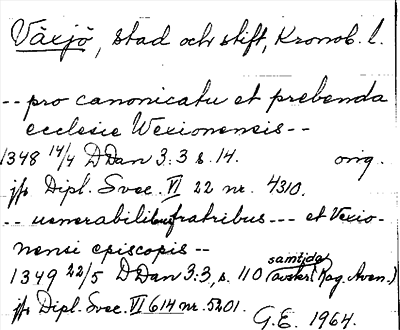 Växjö, stad och stift, Kronob. l.
-- pro canonicatu et prebenda
ecclesie Wexionensis --
1348 14/4 DDan 3:3 s. 14. orig.
jfr Dipl. Svec. VI 22 nr. 4310.
-- uenerabilibus fratribus --- et Vexio-
nensi episcopis --
samtida
1349 22/5 DDan 3:3, s. 110 (avskr. Reg. Aven.)
jfr Dipl. Svec. VI 614 nr. 5201.
G.E. 1964.